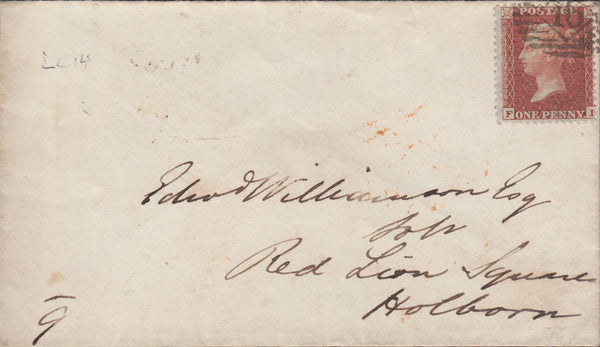 LC 14
18
POSTAGE
F ONE PENNY I
Edwd Williamson Esq
Solr
Red Lion Square
Holborn
9